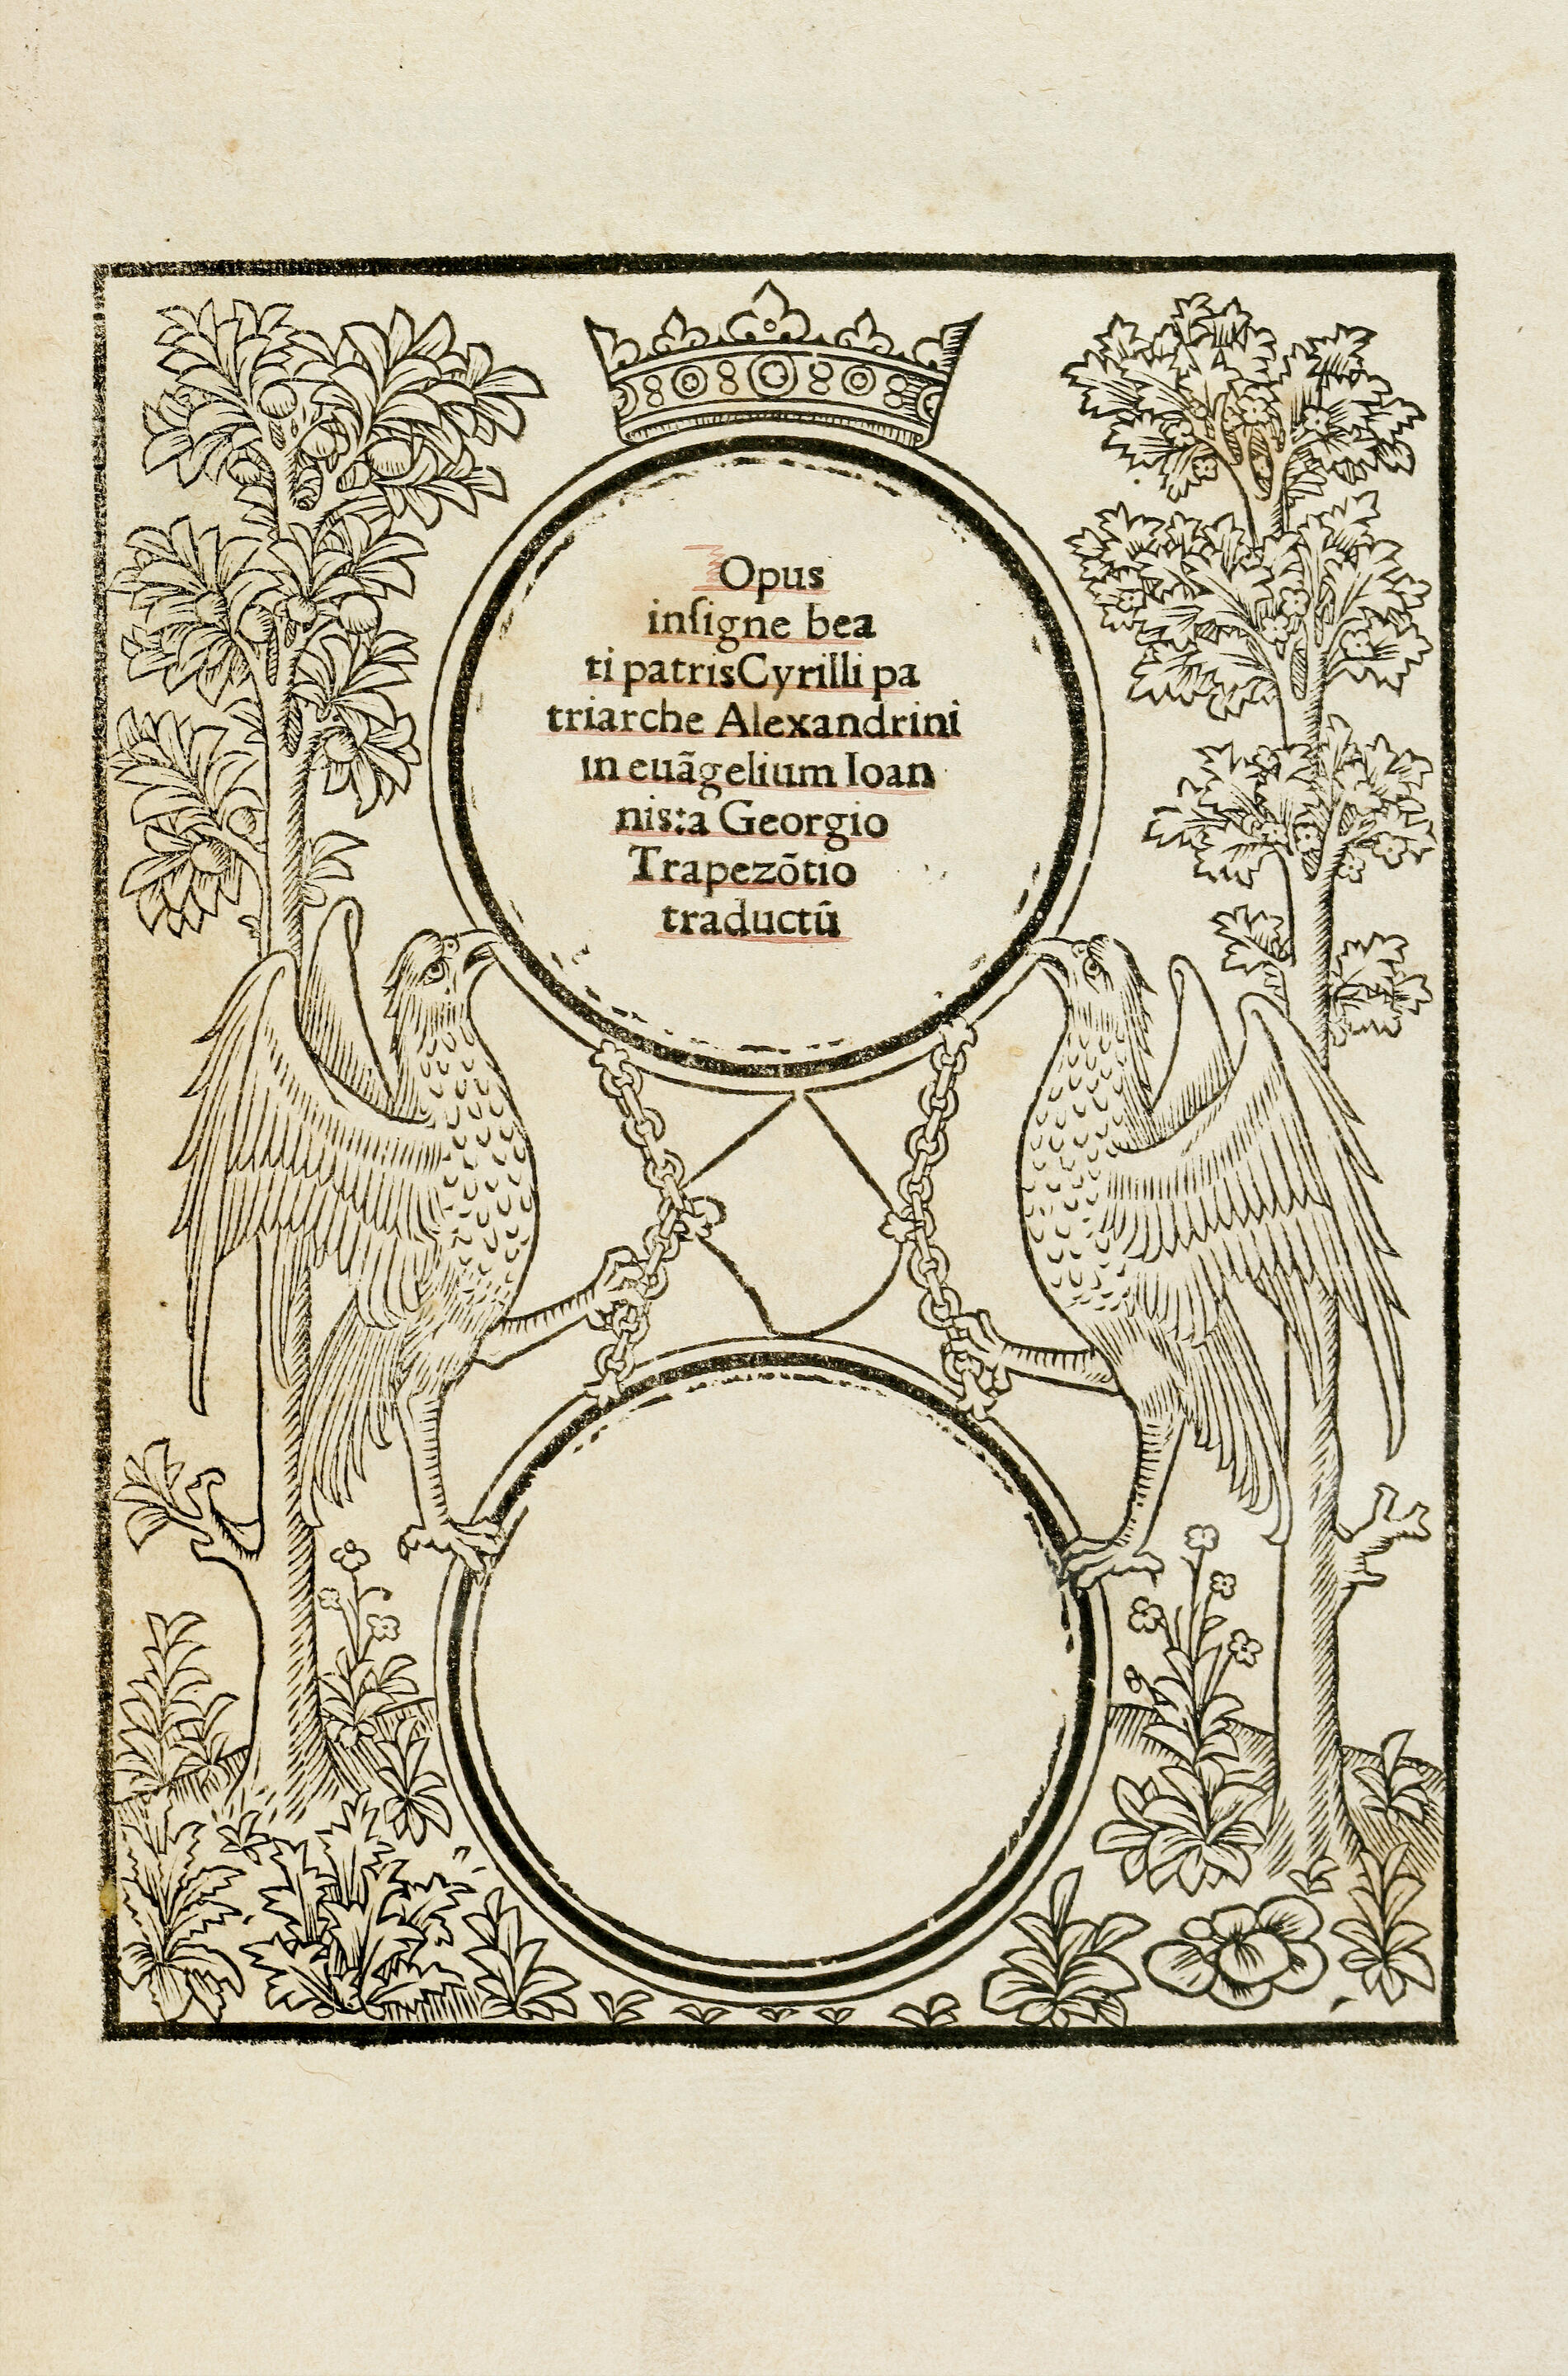 Opus
inſigne bea
ti patrisCyrilli pa
triarche Alexandrini
in euãgelium Ioan
nis:a Georgio
Trapezõtio
traductũ